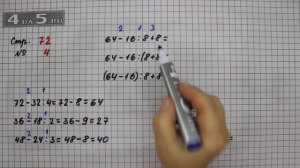 4 DA 5 .RU
Стр. 72
№ 4
2 1 3
64-16:8+8=
64-16:(8+8
(64-16):8+8
2 1
72-32:4=72-8=64
2 1
36-18:2=36-9=27
2 1
48-24:3=48-8=40